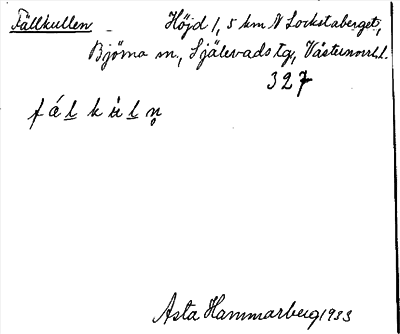 Fällkullen - Höjd 1,5 km N Lockstaberget,
Björna sn., Själevads tg, Västernorrl. l.
327
fá l̲ k ù l̲ n̥
Asta Hammarberg 1933